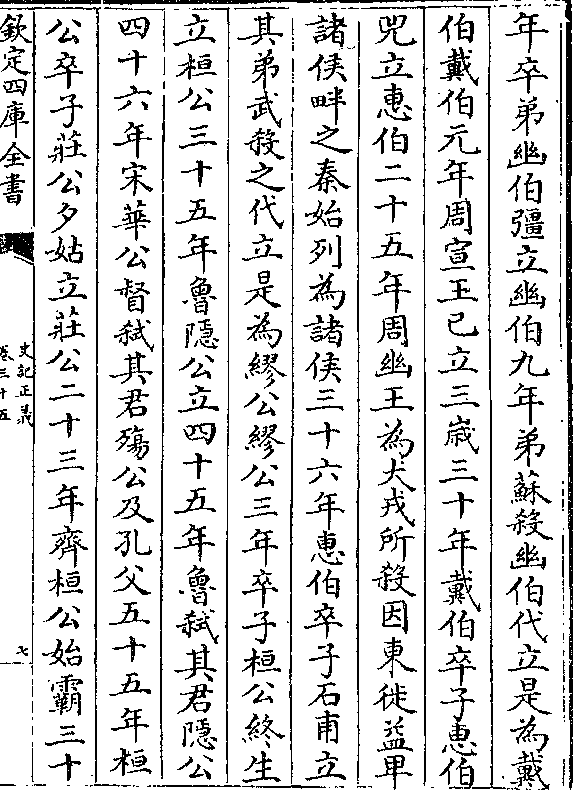 年卒弟幽伯彊立幽伯九年弟蘇殺幽伯代立是為戴
伯戴伯元年周宣王已立三歲三十年戴伯卒子惠伯
兕立惠伯二十五年周幽王為犬戎所殺因東徙益卑
諸侯畔之秦始列為諸侯三十六年惠伯卒子石甫立
其弟武殺之代立是為繆公繆公三年卒子桓公終生
立桓公三十五年魯隱公立四十五年魯弑其君隱公
四十六年宋華公督弑其君殤公及孔父五十五年桓
公卒子莊公夕姑立莊公二十三年齊桓公始霸三十
欽定四庫全書
史記正義
卷三十五
七